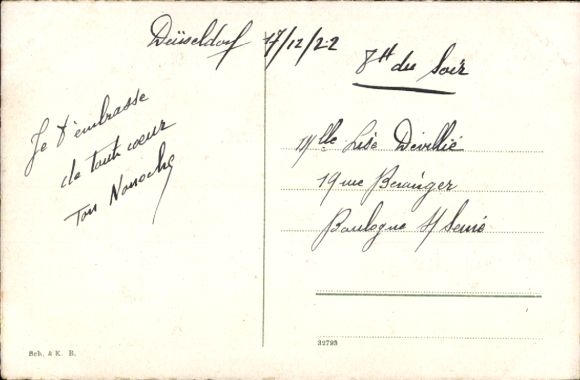 Düsseldorf 17/12/22
8 H du Soir
Je t'embrasse
de tout cœur
Ton
Mlle Lise Devillié
19 rue Beranger
Boulogne S/ Seine
Sch. & K. B.
32793